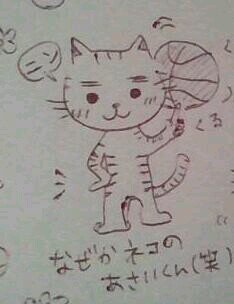 くる
なぜか ネコの
あさいくん(笑)